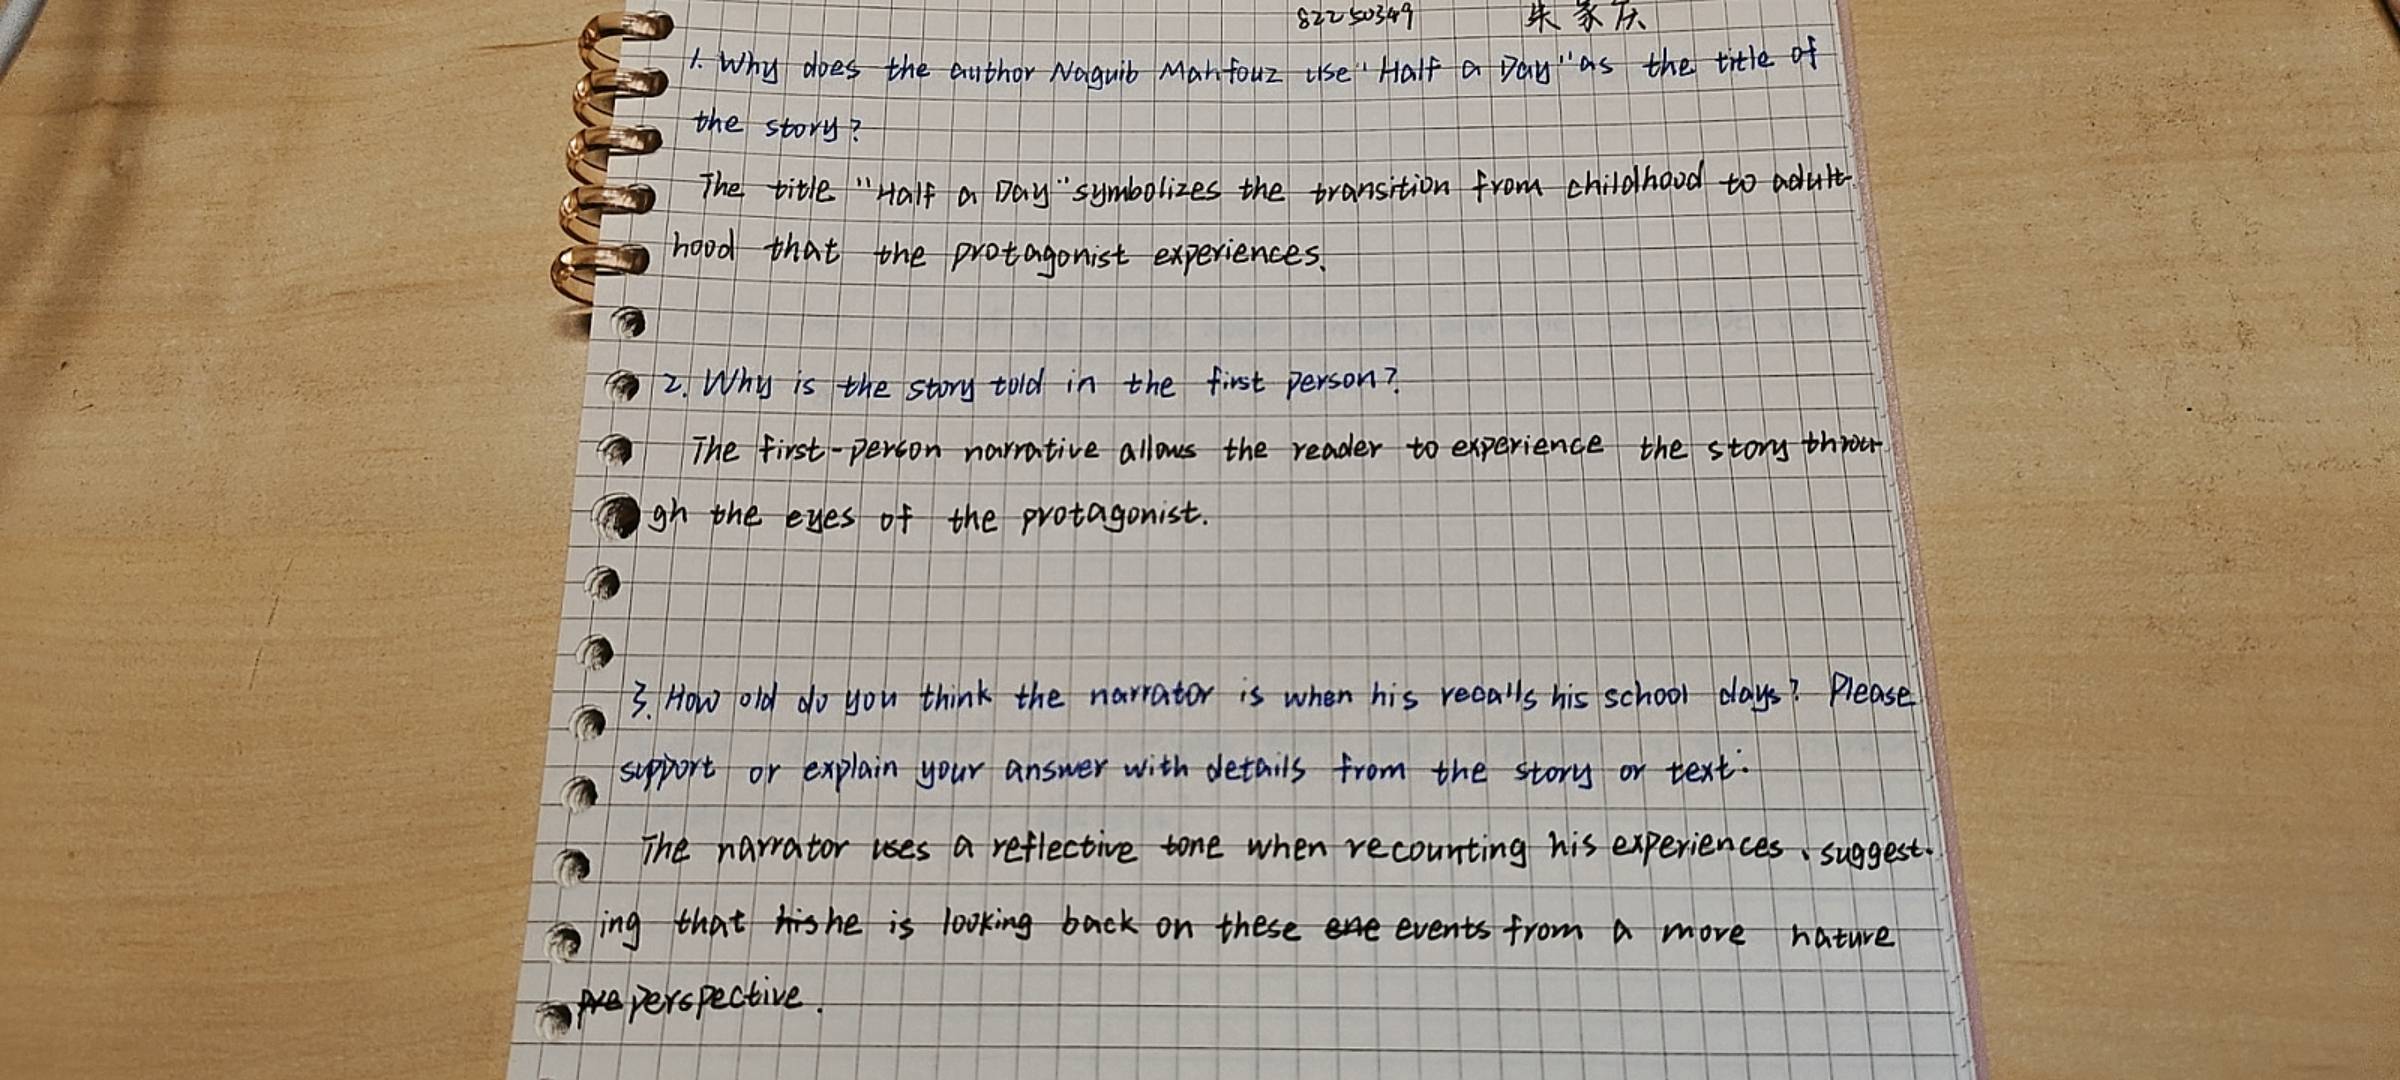 82250349 朱家庆
1. Why does the author Naguib Mahfouz use "Half a Day" as the title of
the story?
The title "Half a Day" symbolizes the transition from childhood to adult-
hood that the protagonist experiences.
2. Why is the story told in the first person?
The first-person narrative allows the reader to experience the story throu-
gh the eyes of the protagonist.
3. How old do you think the narrator is when his recalls his school days? Please
support or explain your answer with details from the story or text.
The narrator uses a reflective tone when recounting his experiences, suggest-
ing that his he is looking back on these ene events from a more nature
pre perspective.